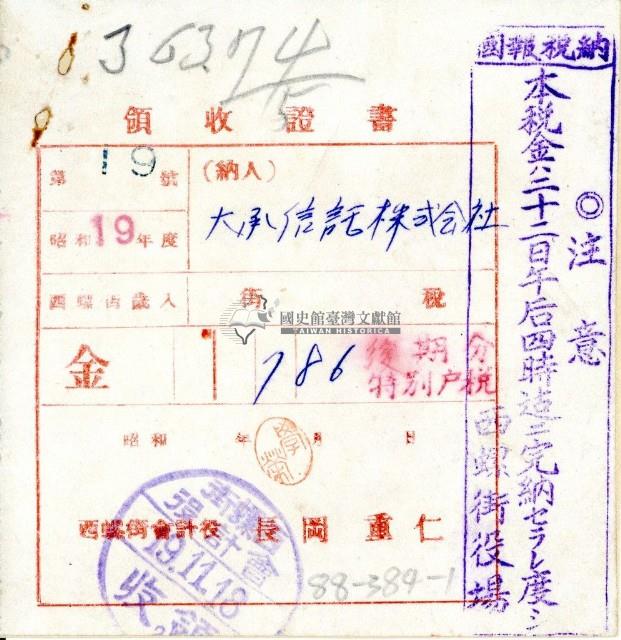 36374
領收證書
第19號
(納人)
大承信託株式会社
昭和19年度
西螺街歲入
街稅
金
786
後期分
特別户稅
昭和 年 月 日
西螺街會計役 長岡重仁
西螺街
會計役
19.11.18
領收
88-384-1
國史館臺灣文獻館
TAIWAN HISTORICA
納税報國
◎注意
本税金ハ二十二日午后四時迄ニ完納セラレ度シ
西螺街役場